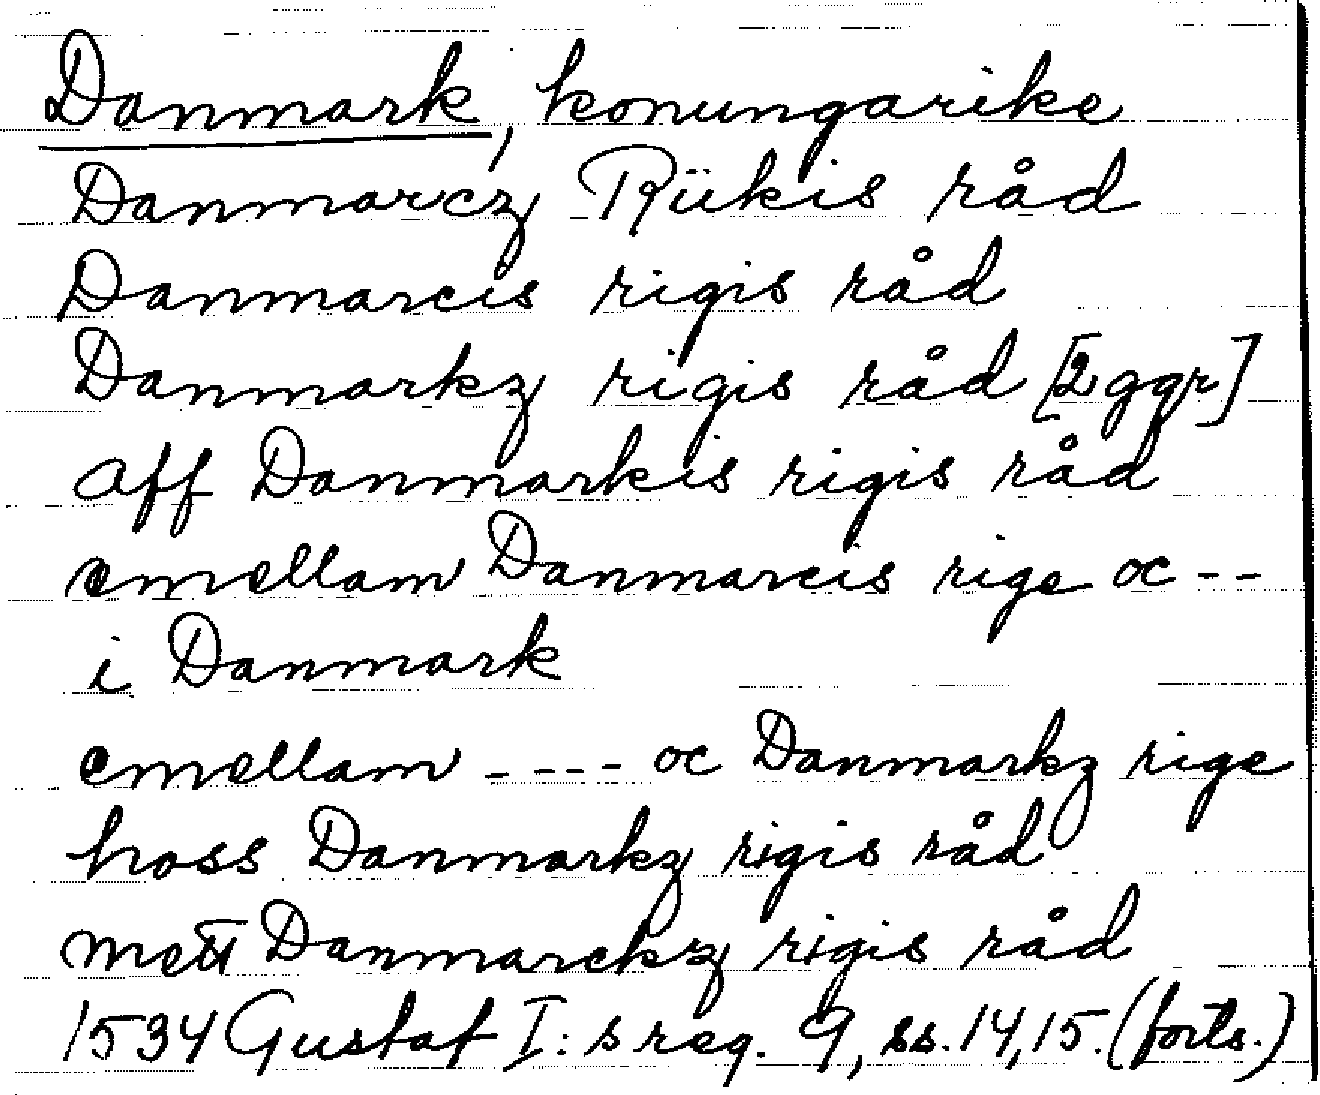 Danmark, konungarike
Danmarcz Rükis råd
Danmarcis rigis råd
Danmarkz rigis råd [2 ggr]
aff Danmarkis rigis råd
emellam Danmarcis rige oc - -
i Danmark
emellam - - - - oc Danmarkz rige
hoss Danmarkz rigis råd
mett Danmarckz rigis råd
1534 Gustaf I:s reg. 9, ss. 14, 15. (forts.)